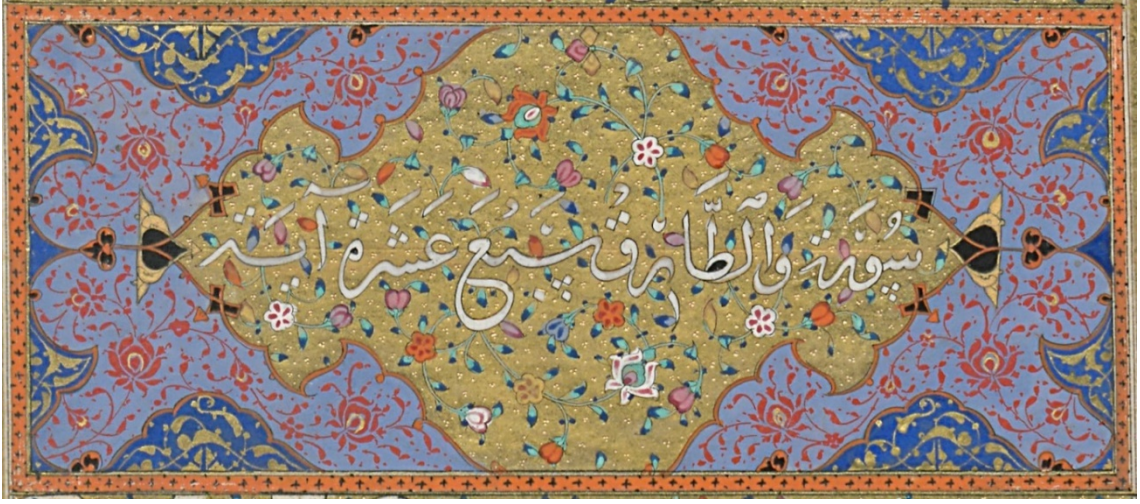 سُورَةُ وَالطَّارِقُ سَبْعَ عَشَرَةَ آيَة